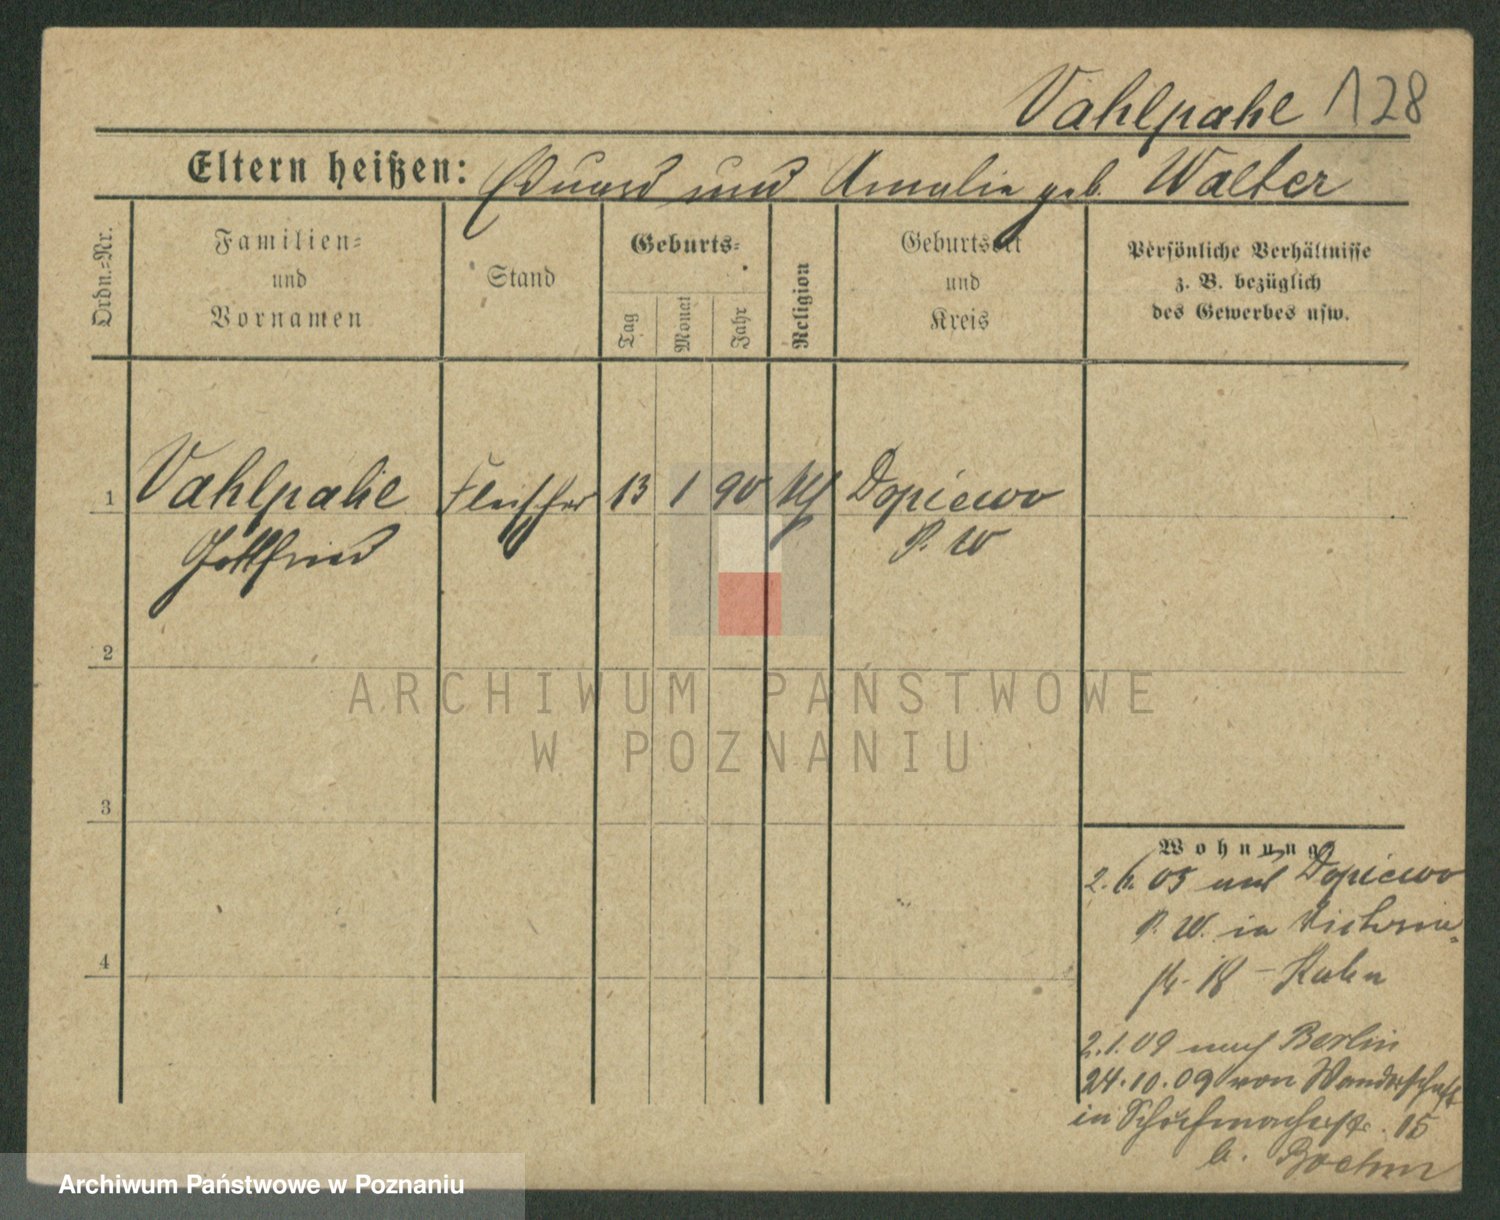 Vahlpahl 128
Eltern heißen: Eduard und Amalie geb. Walter
Ordn.-Nr.
Familien-
und
Vornamen
Stand
Geburts-
Tag
Monat
Jahr
Religion
Geburtsort
und
Kreis
Persönliche Verhältnisse
z. B. bezüglich
des Gewerbes usw.
1 Vahlpahl Fleischer 13 1 90 Dopiewo
Gottfried P. W
2
3
4
Wohnung
2. 6. 05 aus Dopiewo
P. W. in Victoria-
str. 18 - Kuhn
2. 1. 09 nach Berlin
24. 10. 09 von Wanderschaft
in Schuhmacherstr. 15
b. Boehm
ARCHIWUM PAŃSTWOWE
W POZNANIU
Archiwum Państwowe w Poznaniu